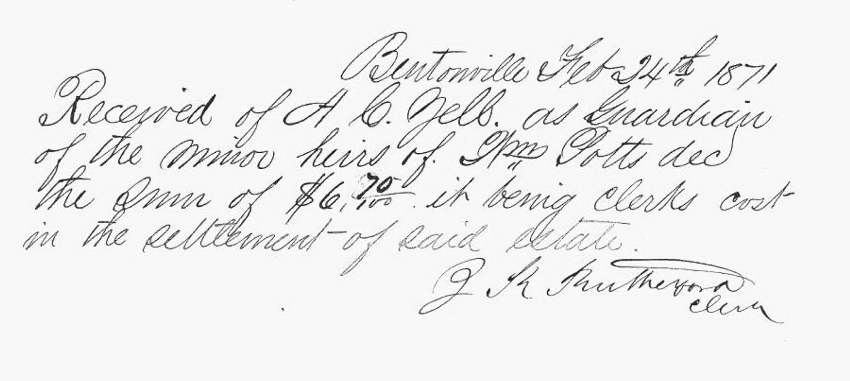 Bentonville Feb 24th 1871
Received of A C. Yell. as Guardian
of the minor heirs of Wm Potts dec
the Sum of $6,70/100 it being clerks cost
in the settlement of said estate.
J R Rutherford
Clerk